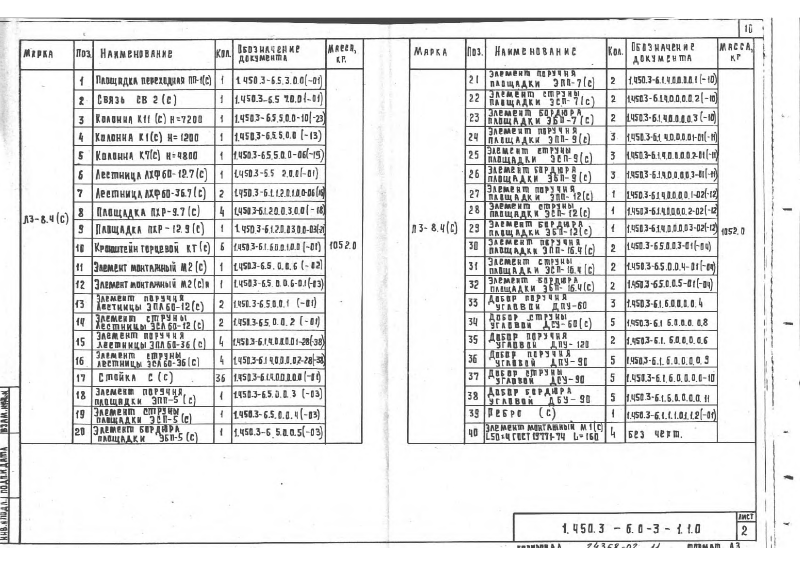 16
МАРКА ПОЗ. НАИМЕНОВАНИЕ КОЛ. ОБОЗНАЧЕНИЕ ДОКУМЕНТА МАССА, КГ.
ЛЗ-8.4(С)
1 ПЛОЩАДКА ПЕРЕХОДНАЯ ПП-1(С) 1 1.450.3-6.5.3.0.0(-01)
2 СВЯЗЬ СВ 2(С) 1 1.450.3-6.5 7.0.0(-01)
3 КОЛОННА К11 (С) Н=7200 1 1.450.3-6.5.5.0.0-10(-23)
4 КОЛОННА К1(С) Н=1200 1 1.450.3-6.5.5.0.0 (-13)
5 КОЛОННА К7(С) Н=4800 1 1.450.3-6.5.5.0.0-06(-19)
6 ЛЕСТНИЦА ЛХФ60-12.7(С) 1 1.450.3-6.5 2.0.0(-01)
7 ЛЕСТНИЦА ЛХФ60-36.7(С) 2 1.450.3-6.1.1.2.0.1.0.0-06
8 ПЛОЩАДКА ПХР-9.7(С) 4 1.450.3-6.1.2.0.0.3.0.0(-18)
9 ПЛОЩАДКА ПХР-12.9(С) 1 1.450.3-6.1.2.0.0.3.0.0-03
10 КРОНШТЕЙН ТОРЦЕВОЙ КТ(С) 6 1.450.3-6.1.6.0.0.1.0.0(-01)
1052.0
11 ЭЛЕМЕНТ МОНТАЖНЫЙ М2(С) 1 1.450.3-6.5.0.0.6 (-02)
12 ЭЛЕМЕНТ МОНТАЖНЫЙ М2(С)Н 1 1.450.3-6.5.0.0.6-01(-03)
13 ЭЛЕМЕНТ ПОРУЧНЯ ЛЕСТНИЦЫ ЭПЛ60-12(С) 2 1.450.3-6.5.0.0.1 (-01)
14 ЭЛЕМЕНТ СТРУНЫ ЛЕСТНИЦЫ ЭСЛ60-12(С) 2 1.450.3-6.5.0.0.2 (-01)
15 ЭЛЕМЕНТ ПОРУЧНЯ ЛЕСТНИЦЫ ЭПЛ60-36(С) 4 1.450.3-6.1.4.0.0.0.01-28(-38)
16 ЭЛЕМЕНТ СТРУНЫ ЛЕСТНИЦЫ ЭСЛ60-36(С) 4 1.450.3-6.1.4.0.0.0.02-28(-38)
17 СТОЙКА С (С) 36 1.450.3-6.1.4.0.0.0.0.8(-01)
18 ЭЛЕМЕНТ ПОРУЧНЯ ПЛОЩАДКИ ЭПП-5(С) 1 1.450.3-6.5.0.0.3 (-03)
19 ЭЛЕМЕНТ СТРУНЫ ПЛОЩАДКИ ЭСП-5(С) 1 1.450.3-6.5.0.0.4(-03)
20 ЭЛЕМЕНТ БОРДЮРА ПЛОЩАДКИ ЭБП-5(С) 1 1.450.3-6 5.0.0.5(-03)
МАРКА ПОЗ. НАИМЕНОВАНИЕ КОЛ. ОБОЗНАЧЕНИЕ ДОКУМЕНТА МАССА, КГ
ЛЗ-8.4(С)
21 ЭЛЕМЕНТ ПОРУЧНЯ ПЛОЩАДКИ ЭПП-7(С) 2 1.450.3-6.1.4.0.0.0.0.1(-10)
22 ЭЛЕМЕНТ СТРУНЫ ПЛОЩАДКИ ЭСП-7(С) 2 1.450.3-6.1.4.0.0.0.0.2(-10)
23 ЭЛЕМЕНТ БОРДЮРА ПЛОЩАДКИ ЭБП-7(С) 2 1.450.3-6.1.4.0.0.0.0.3(-10)
24 ЭЛЕМЕНТ ПОРУЧНЯ ПЛОЩАДКИ ЭПП-9(С) 3 1.450.3-6.1.4.0.0.0.0.01-01(-11)
25 ЭЛЕМЕНТ СТРУНЫ ПЛОЩАДКИ ЭСП-9(С) 3 1.450.3-6.1.4.0.0.0.0.2-01(-11)
26 ЭЛЕМЕНТ БОРДЮРА ПЛОЩАДКИ ЭБП-9(С) 3 1.450.3-6.1.4.0.0.0.0.3-01(-11)
27 ЭЛЕМЕНТ ПОРУЧНЯ ПЛОЩАДКИ ЭПП-12(С) 1 1.450.3-6.1.4.0.0.0.0.1-02(-12)
28 ЭЛЕМЕНТ СТРУНЫ ПЛОЩАДКИ ЭСП-12(С) 1 1.450.3-6.1.4.0.0.0.0.2-02(-12)
29 ЭЛЕМЕНТ БОРДЮРА ПЛОЩАДКИ ЭБП-12(С) 1 1.450.3-6.1.4.0.0.0.03-02(-12)
1052.0
30 ЭЛЕМЕНТ ПОРУЧНЯ ПЛОЩАДКИ ЭПП-16.4(С) 2 1.450.3-6.5.0.0.3-01(-04)
31 ЭЛЕМЕНТ СТРУНЫ ПЛОЩАДКИ ЭСП-16.4(С) 2 1.450.3-6.5.0.0.4-01(-04)
32 ЭЛЕМЕНТ БОРДЮРА ПЛОЩАДКИ ЭБП-16.4(С) 2 1.450.3-6.5.0.0.5-01(-04)
33 ДОБОР ПОРУЧНЯ УГЛОВОЙ ДПУ-60 3 1.450.3-6.1.6.0.0.0.4
34 ДОБОР СТРУНЫ УГЛОВОЙ ДСУ-60(С) 5 1.450.3-6.1 6.0.0.0.8
35 ДОБОР ПОРУЧНЯ УГЛОВОЙ ДПУ-120 2 1.450.3-6.1.6.0.0.0.6
36 ДОБОР ПОРУЧНЯ УГЛОВОЙ ДПУ-90 5 1.450.3-6.1.6.0.0.0.9
37 ДОБОР СТРУНЫ УГЛОВОЙ ДСУ-90 5 1.450.3-6.1.6.0.0.0-10
38 ДОБОР БОРДЮРА УГЛОВОЙ ДБУ-90 5 1.450.3-6.1.6.0.0.0.11
39 РЕБРО (С) 1 1.450.3-6.1.1.1.01.1.2(-01)
40 ЭЛЕМЕНТ МОНТАЖНЫЙ М1(С) L50×4 ГОСТ 19771-74 L=160 4 БЕЗ ЧЕРТ.
ИНВ.№ПОДЛ. ПОДП.И ДАТА ВЗАМ.ИНВ.№
1.450.3 - 6.0-3 - 1.1.0
ЛИСТ
2
КОПИРОВАЛ 24358-02 11 ФОРМАТ А3